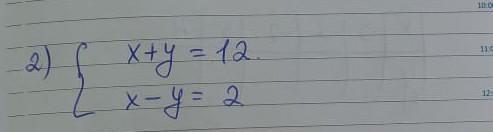 2) { x+y = 12.
x-y = 2
10:0
11:0
12: